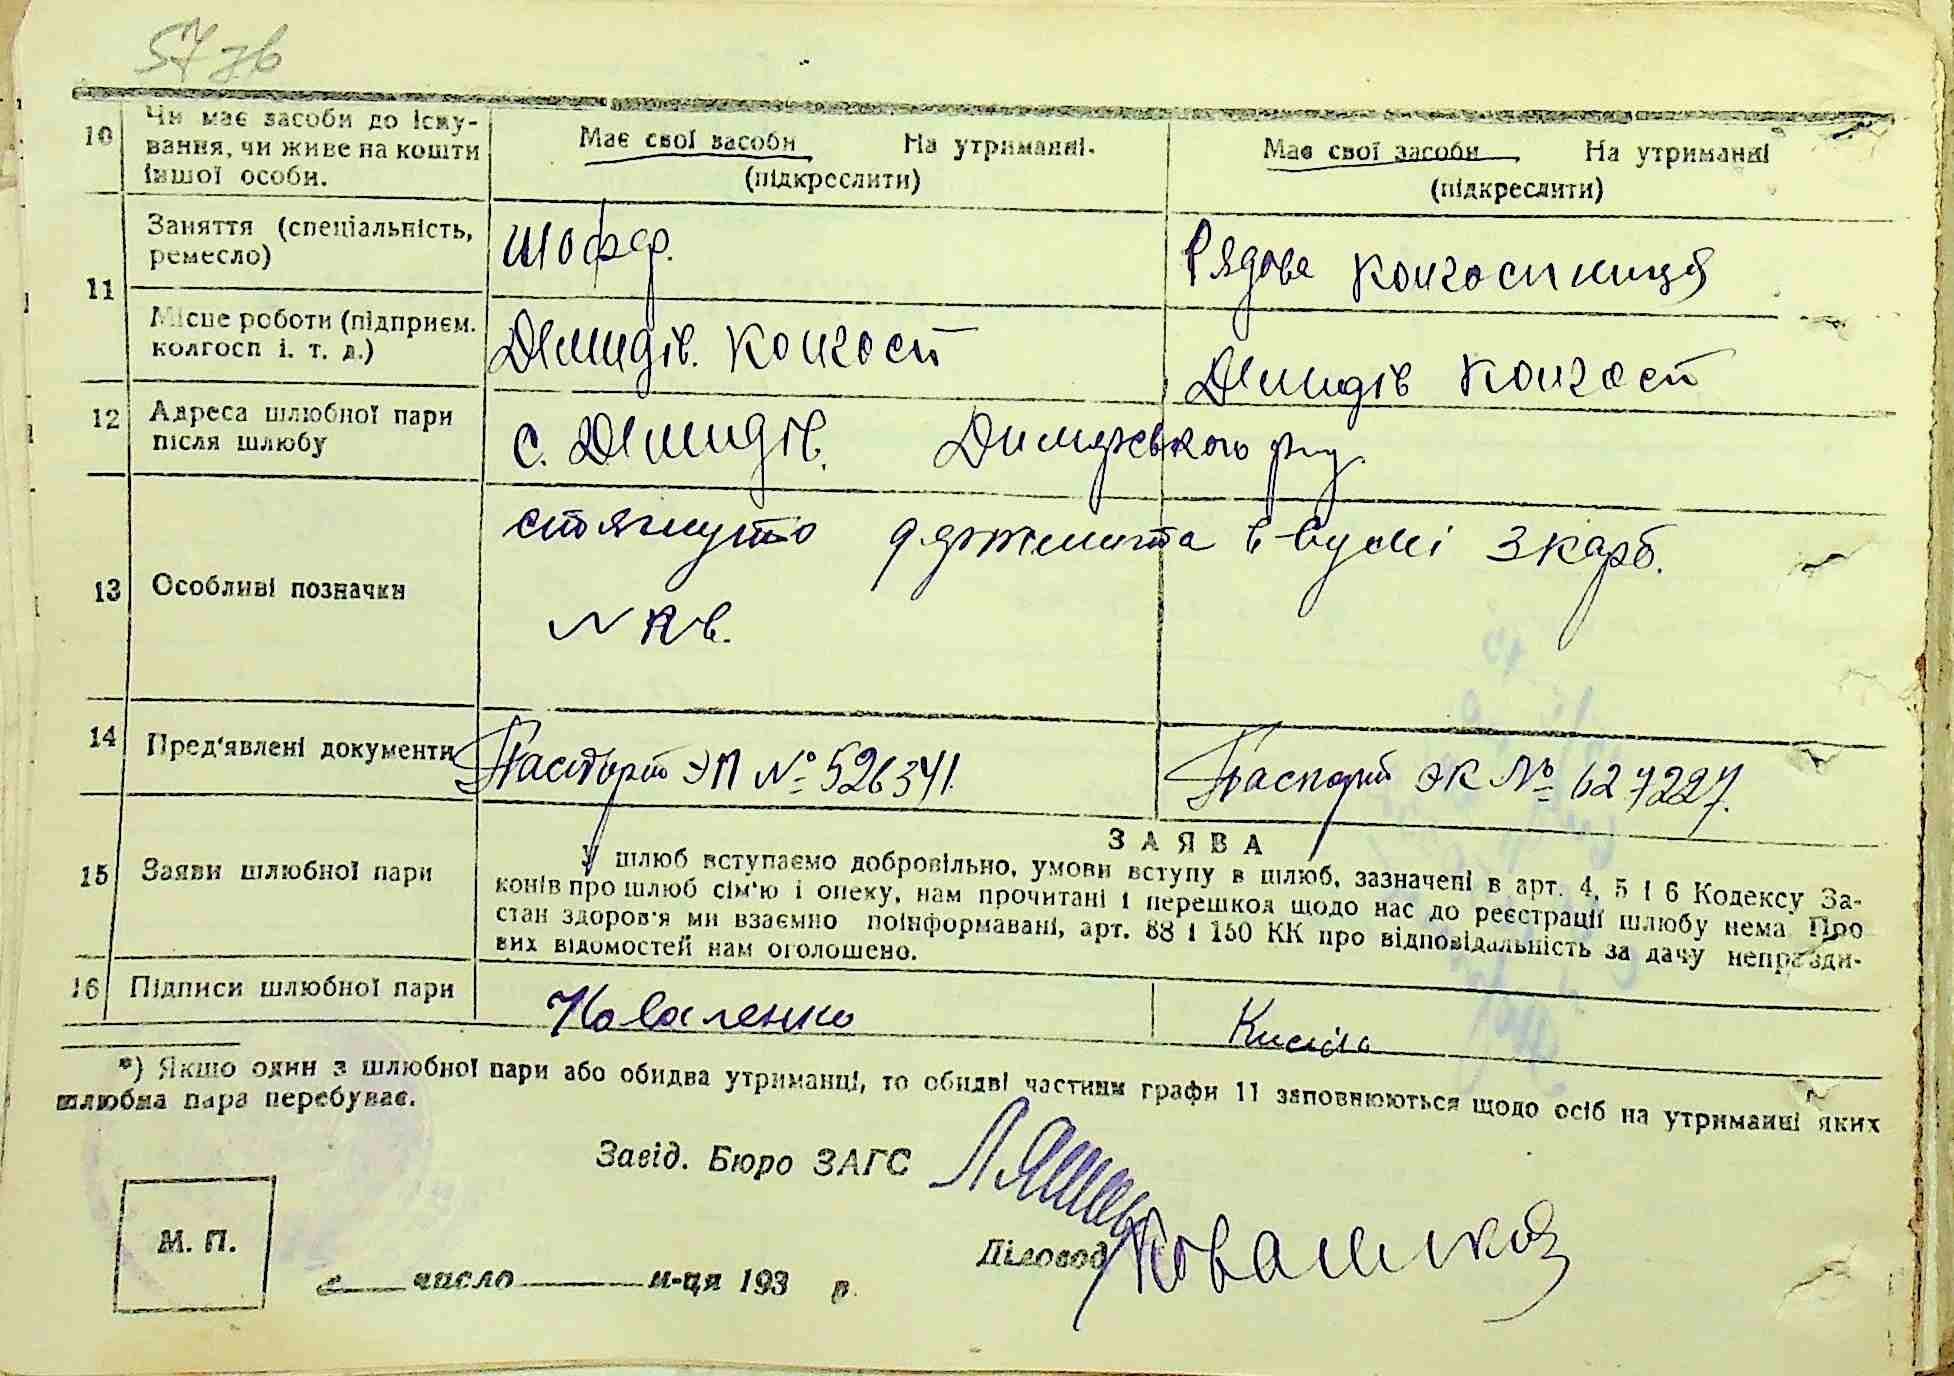 57 зв
10 Чи має засоби до існу-
вання, чи живе на кошти
іншої особи.
Має свої засоби На утриманні.
(підкреслити)
Має свої засоби На утриманні
(підкреслити)
11 Заняття (спеціальність,
ремесло)
Шофер.
Рядова колгоспниця
Місце роботи (підприєм.
колгосп і. т. д.)
Демидів. колгосп
Демидів колгосп
12 Адреса шлюбної пари
після шлюбу
с. Демидів. Димерського р-ну.
13 Особливі позначки
стягнуто держмита в сумі 3 карб.
14 Пред'явлені документи
Паспорт ЭП № 526341.
Паспорт ЭК № 627227.
15 Заяви шлюбної пари
ЗАЯВА
У шлюб вступаємо добровільно, умови вступу в шлюб, зазначені в арт. 4, 5 і 6 Кодексу За-
конів про шлюб сім'ю і опеку, нам прочитані і перешкод щодо нас до реєстрації шлюбу нема. Про
стан здоров'я ми взаємно поінформавані, арт. 88 і 150 КК про відповідальність за дачу неправди-
вих відомостей нам оголошено.
16 Підписи шлюбної пари
Коваленко
Кисіль
*) Якщо один з шлюбної пари або обидва утриманці, то обидві частини графи 11 заповнюються щодо осіб на утриманні яких
шлюбна пара перебуває.
Завід. Бюро ЗАГС
Діловод
М. П.
число м-ця 193 р.